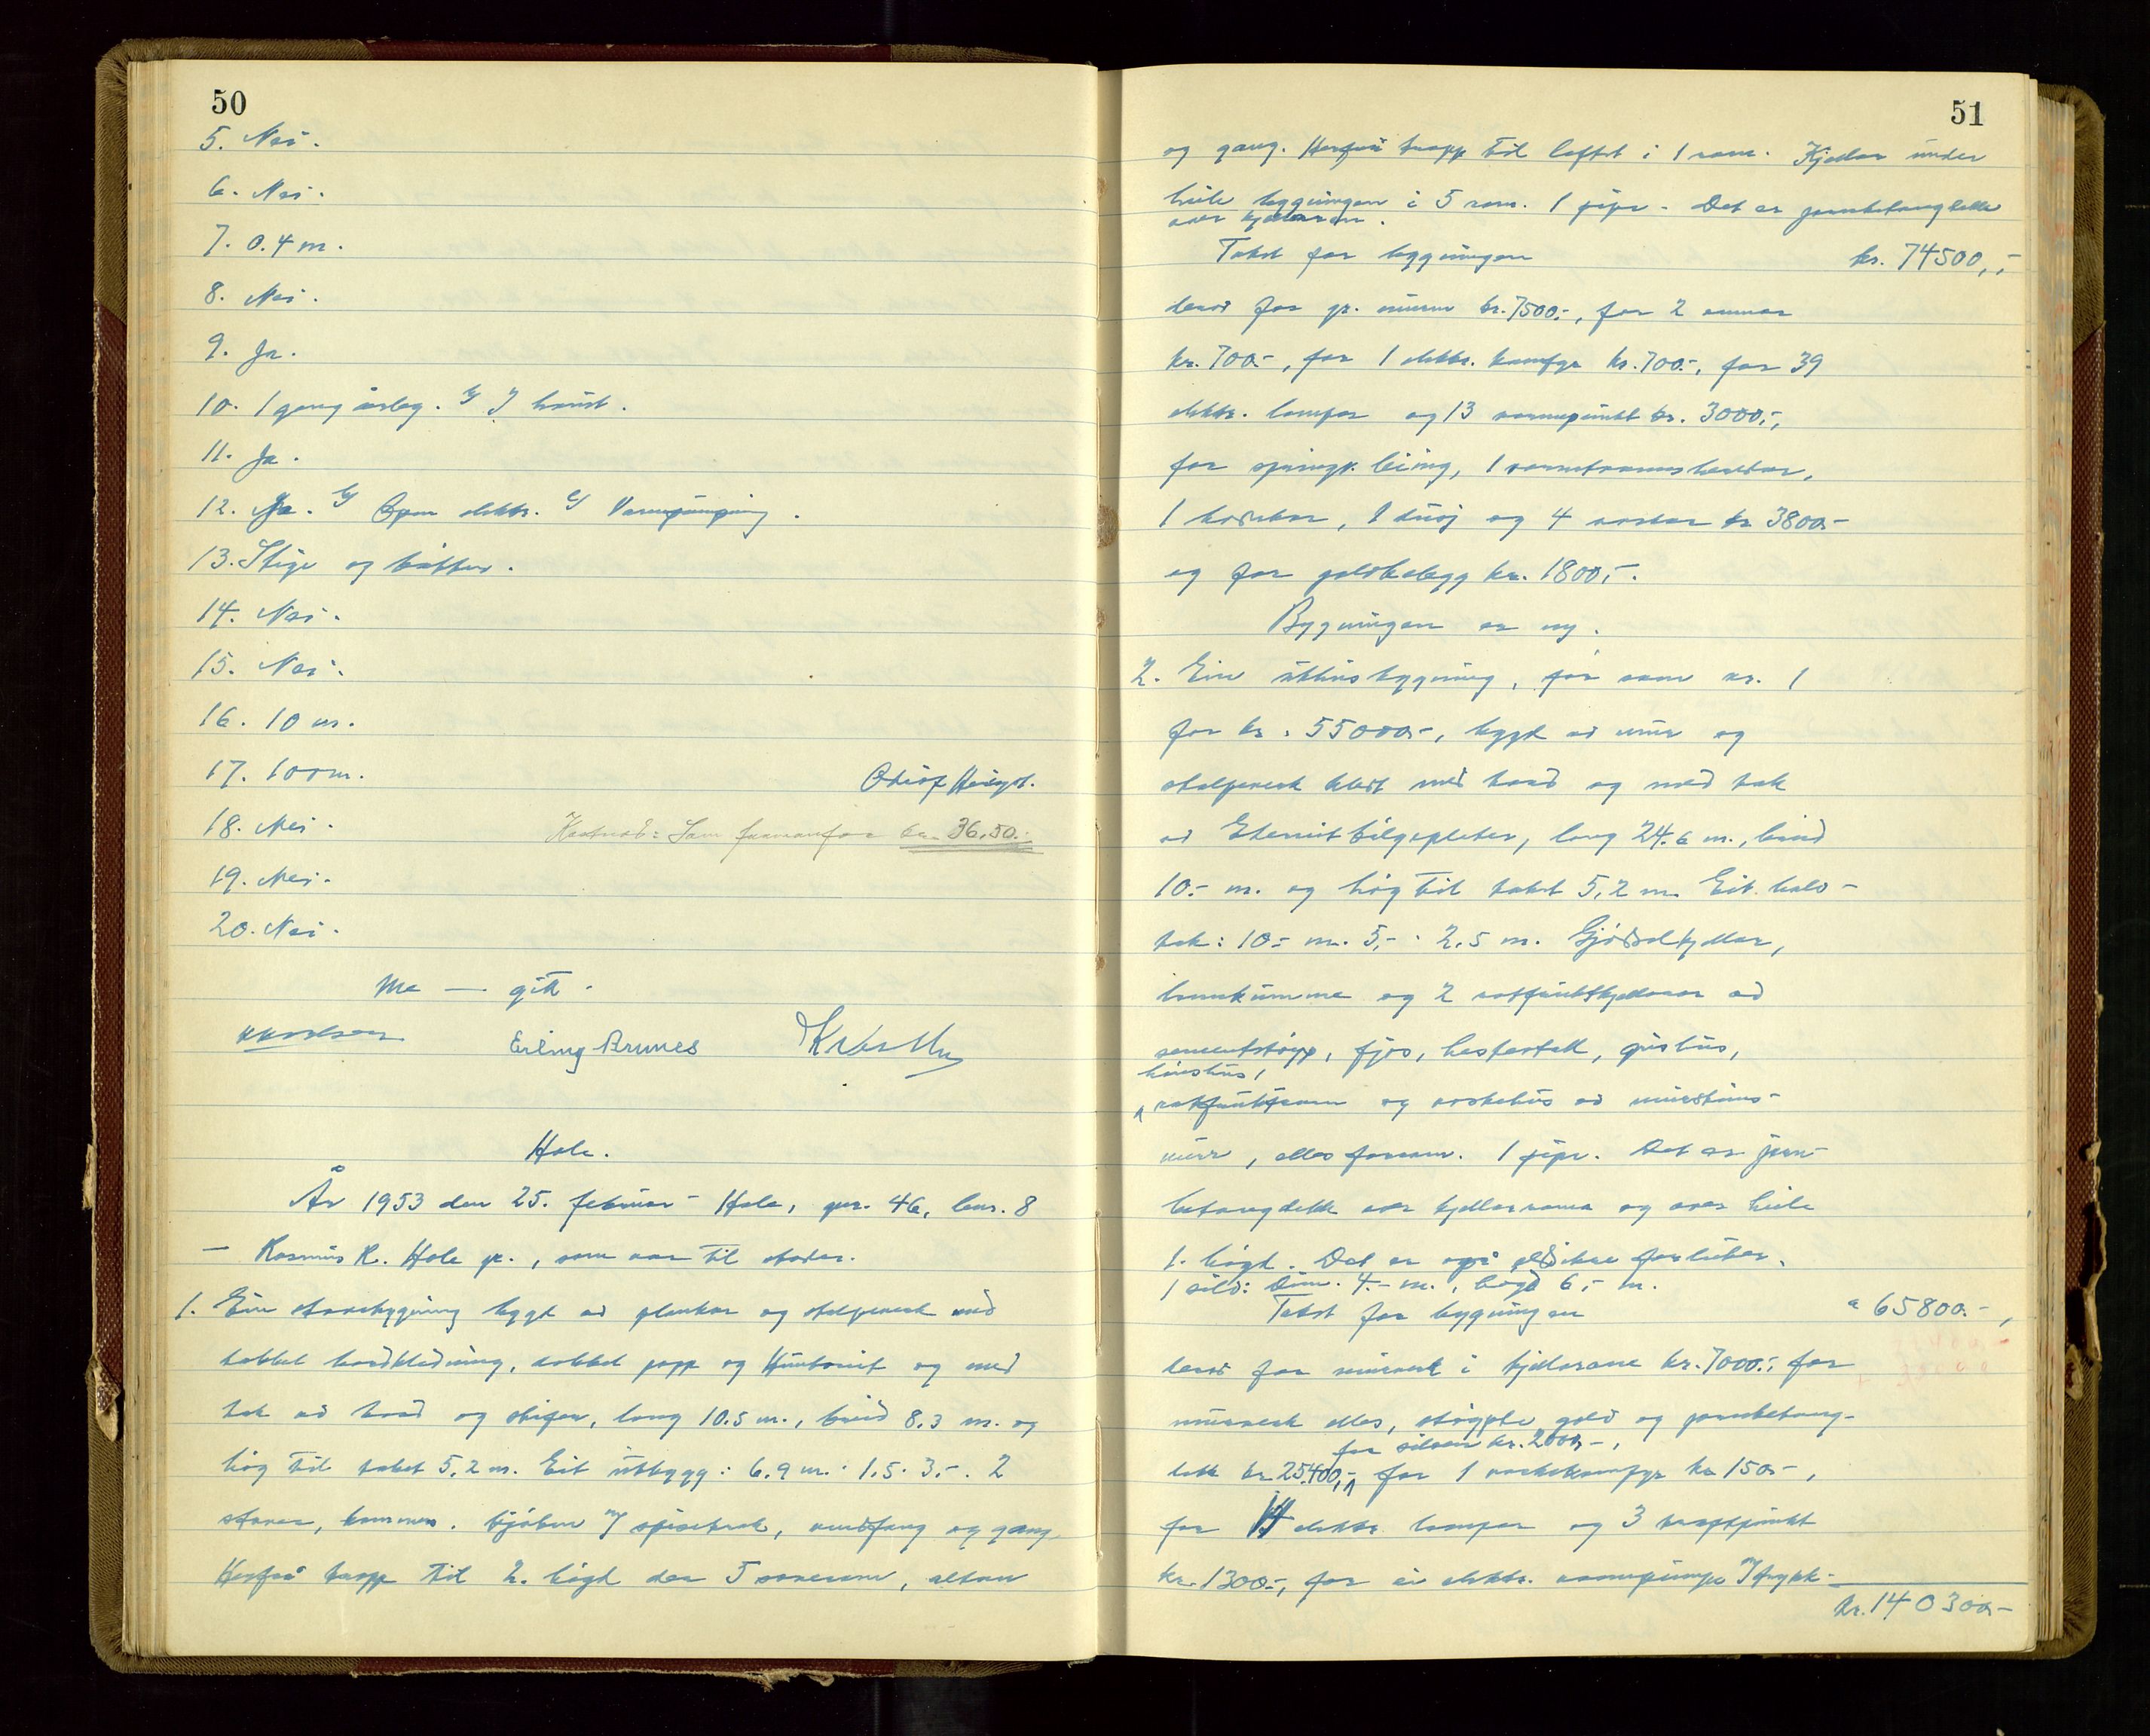 50
5. Nei.
6. Nei.
7. 0.4 m.
8. Nei.
9. Ja.
10. 1 gong årleg. b/ I haust.
11. Ja.
12. Ja. b/ Open elektr. c/ Vasspumping.
13. Stige og bøtter.
14. Nei.
15. Nei.
16. 10 m.
17. 100 m.
18. Nei.
Kostnad: Som framanfor kr. 36,50.-
19. Nei.
20. Nei.
Me — gitt.
Erling Årnes
Hole.
År 1953 den 25. februar - Hole, gnr. 46, bnr. 8
- Rasmus R. Hole jr., som var til stades.
1. Ein stovebygning bygt av plankar og stolpeverk med
dobbel bordkledning, dobbel papp og Huntonit og med
tak av bord og skifer, lang 10.5 m., breid 8.3 m. og
høg til taket 5,2 m. Eit utbygg: 6.9 m. · 1.5 · 3,-. 2
stover, kammer, kjøken m/ spisekrok, vindfang og gang
Herfrå trapp til 2. høgd der 5 soverom, altan
51
og gang. Herfrå trapp til loftet i 1 rom. Kjellar under
heile bygningen i 5 rom. 1 pipe. Det er jernbetongdekke
over kjellaren.
Takst for bygningen kr. 74500,-
derav for gr. muren kr. 7500.-, for 2 omnar
kr. 700.-, for 1 elektr. komfyr kr. 700.-, for 39
elektr. lamper og 13 varmepunkt kr. 3000.-,
for springv. leiing, 1 varmtvannsbereder,
1 badekar, 1 dusj og 4 vaskar kr 3800.-
og for golvbelegg kr. 1800,-.
Bygningen er ny.
2. Ein uthusbygning, før som nr. 1
for kr. 55000.-, bygt av mur og
stolpeverk kledt med bord og med tak
av Eternit bølgeplater, lang 24.6 m., breid
10.- m. og høg til taket 5,2 m. Eit halv-
tak: 10.- m. 5,- · 2.5 m. Gjødselkjellar,
landkumme og 2 rotfruktkjellarar av
sementstøyp, fjøs, hestestall, grishus,
hønshus,
rotfruktrom og vaskehus av mursteins-
mur, elles forrom. 1 pipe. Det er jern-
betongdekk over kjellarroma og over heile
1. høgd. Det er også
1 silo: Dim. 4.- m., høgd 6,- m.
Takst for bygningen " 65800.-,
derav for murverk i kjellarane kr. 7000.-, for
murverk elles, støypte golv og jernbetong-
for siloen kr. 2000,-,
dekk kr. 25400,- for 1 vaskekomfyr kr 150.-,
for 14 elektr. lamper og 3 kraftpunkt
kr. 1300.-, for ei elektr. vasspumpe m/ trykk-
kr. 140300.-